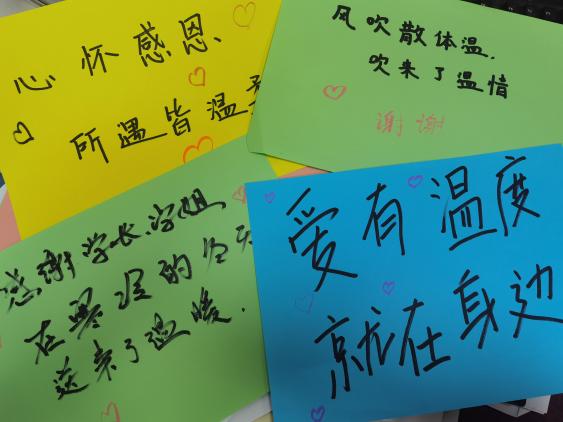 心怀感恩
所遇皆温柔
风吹散体温.
吹来了温情
谢谢
感谢学长、学姐
在寒湿的冬天
送来了温暖.
爱有温度
就在身边